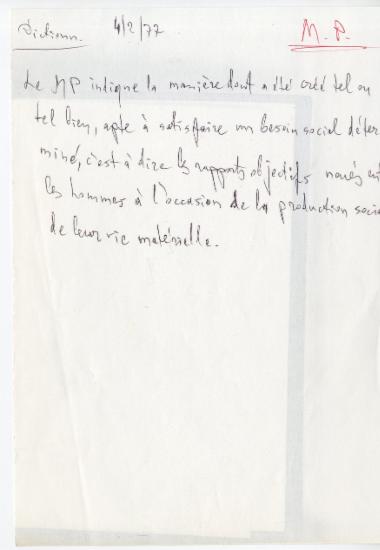 Dictionn. 4/2/77 M.P.
Le MP indique la manière dont a été créé tel ou
tel bien, apte à satisfaire un besoin social déter
miné, c'est à dire les rapports objectifs noués ent
les hommes à l'occasion de la production socia
de leur vie matérielle.